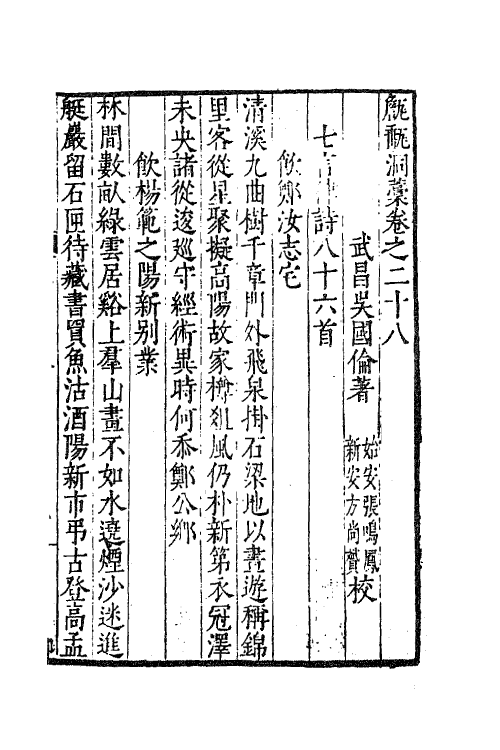 甔甀洞藁卷之二十八
武昌吳國倫著
始安張鳴鳳
新安方尚贇校
七言律詩八十六首
飲鄭汝志宅
清溪九曲樹千章門外飛泉掛石梁地以晝遊稱錦
里客從星聚擬高陽故家樽俎風仍朴新第衣冠澤
未央諸從逡廵守經術異時何忝鄭公鄉
飲楊範之陽新別業
林間數畝綠雲居谿上羣山畫不如水遶煙沙迷進
艇巖留石匣待藏書買魚沽酒陽新市弔古登高孟